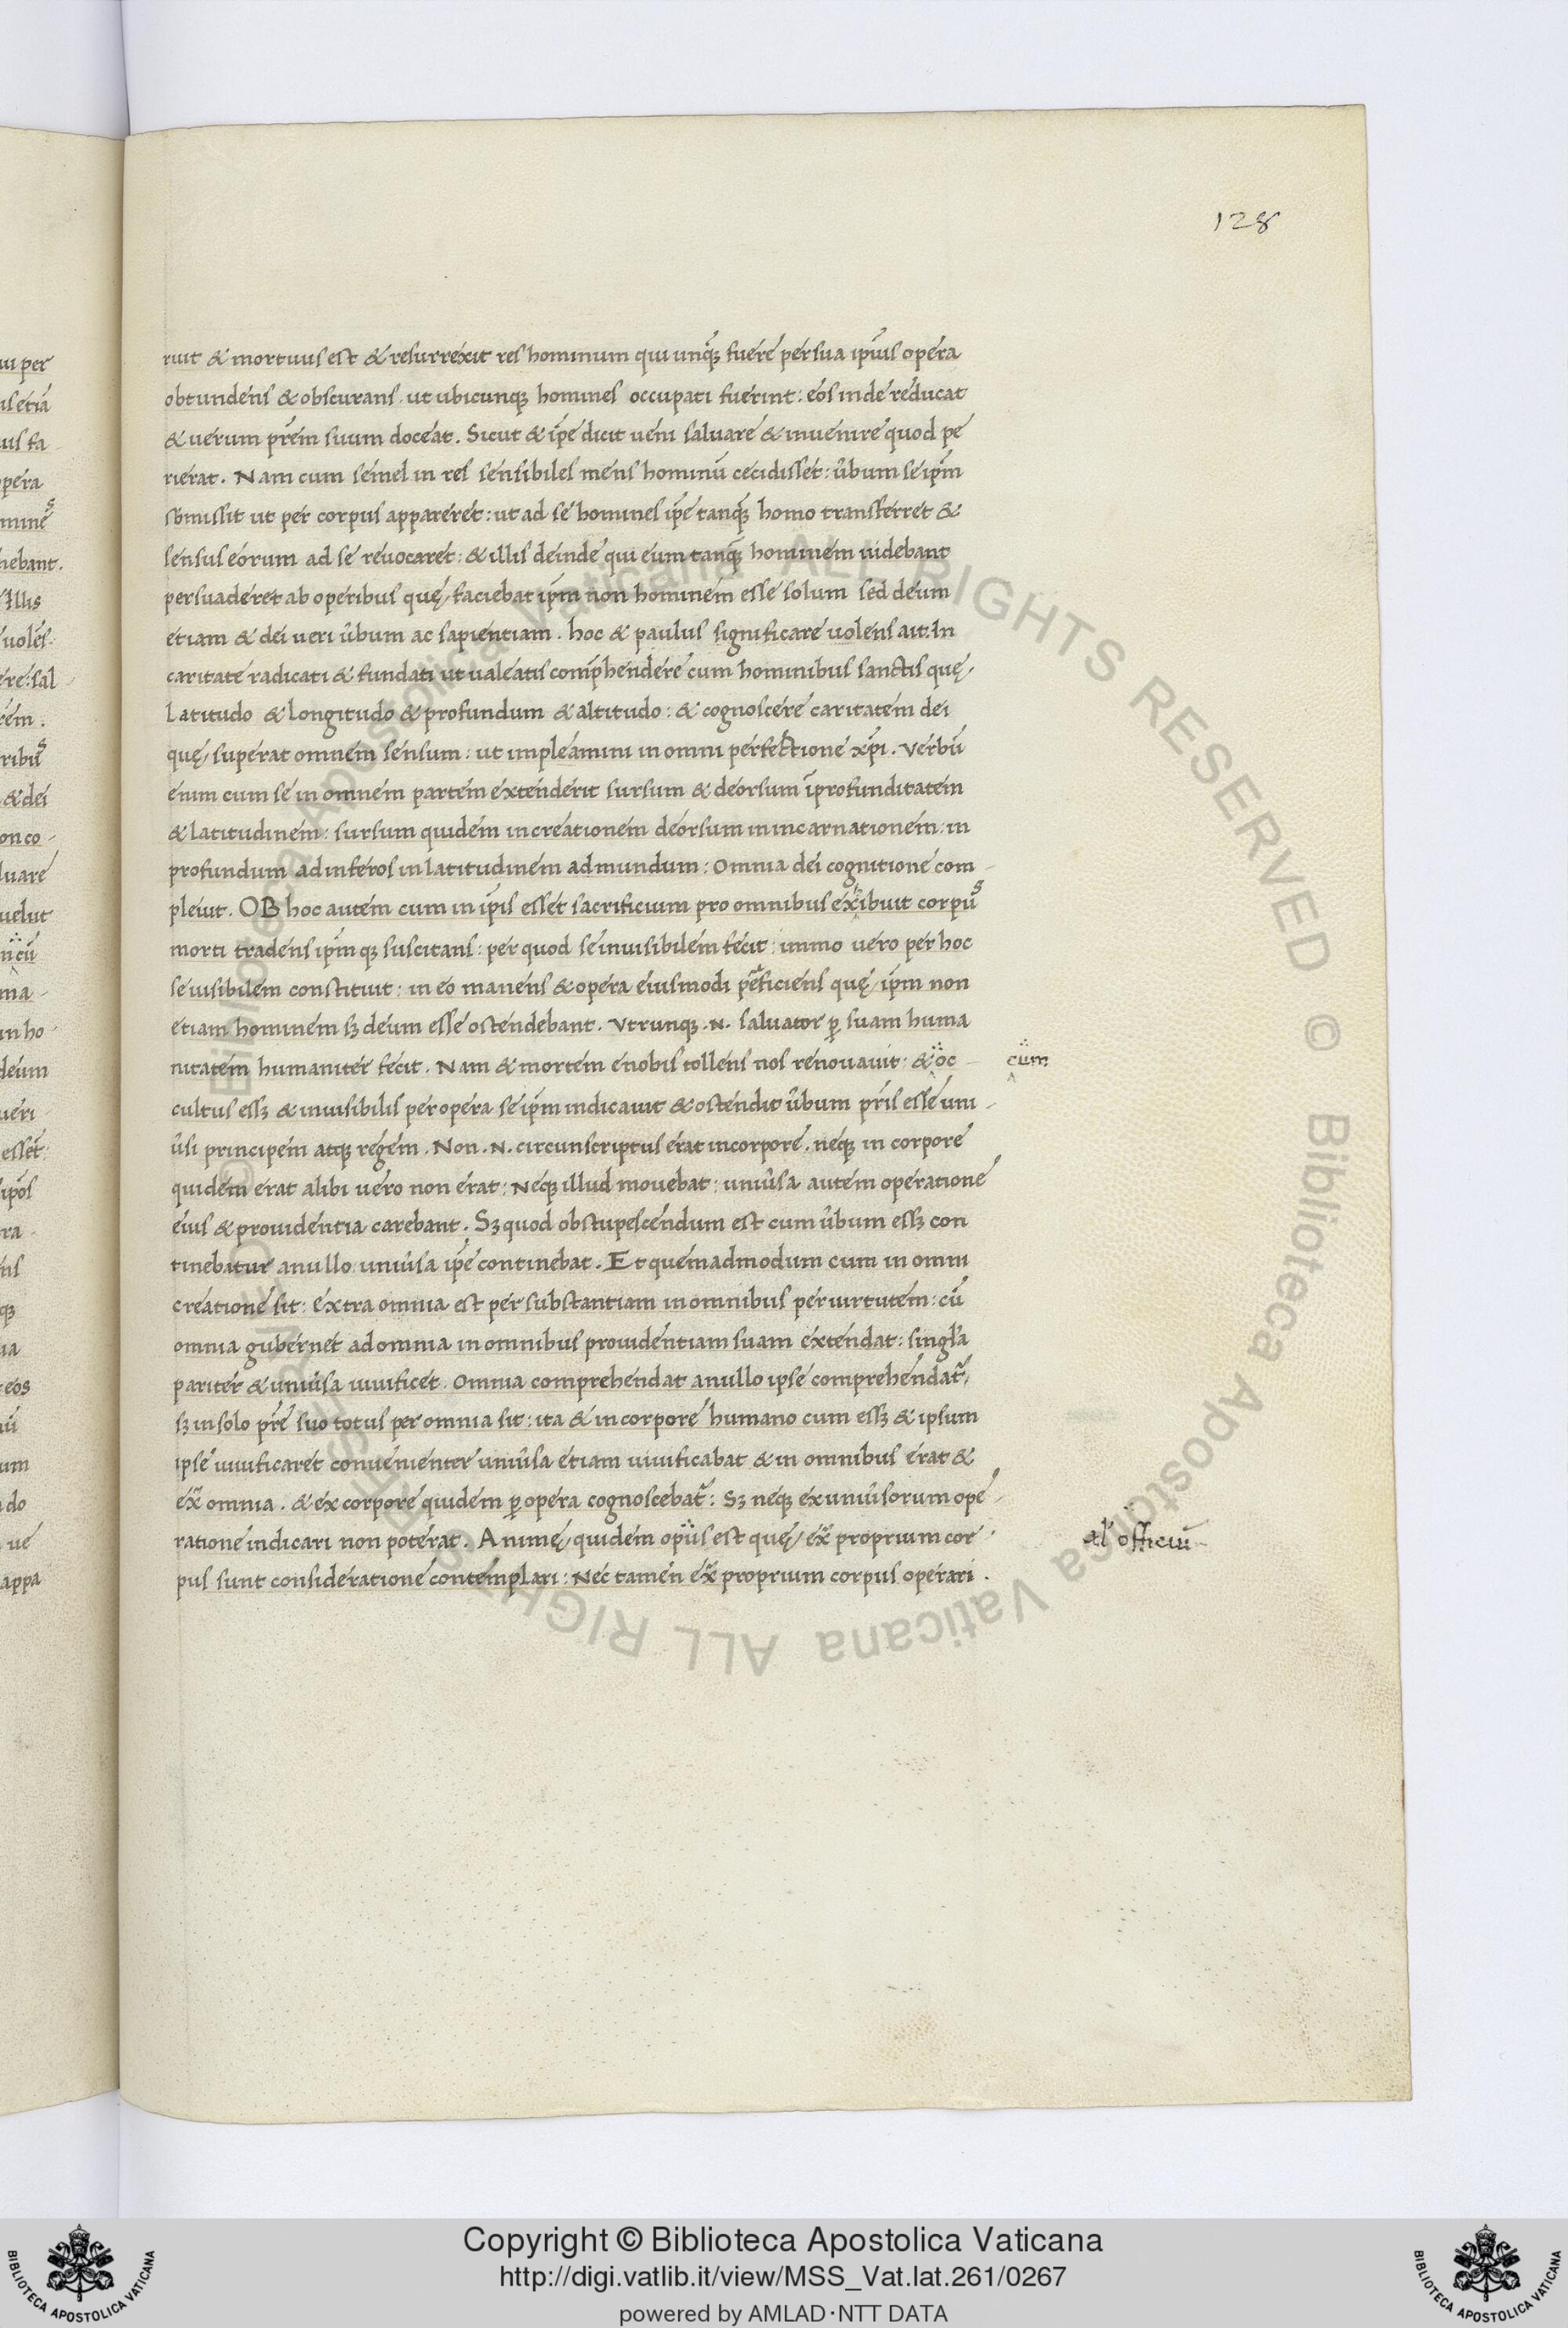 128
ruit & mortuus est & resurrexit res hominum qui unq̃ fuere per sua ip̃ius opera
obtundens & obscurans. ut ubicunq; homines occupati fuerint: eos inde reducat
& uerum pr̃em suum doceat. Sicut & ip̃e dicit ueni saluare & inuenire quod pe
rierat. Nam cum semel in res sensibiles mens hominũ cecidisset: ũbum se ip̃m
sbmissit ut per corpus appareret: ut ad se homines ip̃e tanq̃ homo transferret &
sensus eorum ad se reuocaret: & illis deinde qui eum tanq̃ hominem uidebant
persuaderet ab operibus quę faciebat ip̃m non hominem esse solum sed deum
etiam & dei ueri ũbum ac sapientiam. hoc & paulus significare uolens ait: In
caritate radicati & fundati ut ualeatis comp̃hendere cum hominibus sanctis quę
Latitudo & Longitudo & profundum & altitudo: & cognoscere caritatem dei
quę superat omnem sensum: ut impleamini in omni perfectione xp̃i. Verbũ
enim cum se in omnem partem extenderit sursum & deorsum ĩ profunditatem
& latitudinem: sursum quidem in creationem deorsum in incarnationem: in
profundum ad inferos in latitudinem ad mundum: Omnia dei cognitione com-
pleuit. OB hoc autem cum in ip̃is esset sacrificium pro omnibus exhibuit corpus
morti tradens ip̃mq; suscitans: per quod se inuisibilem fecit: immo uero per hoc
se uisibilem constituit: in eo manens & opera eiusmodi perficiens quę ip̃m non
etiam hominem sʒ deum esse ostendebant. Vtrunq; .N. saluator ꝑ suam huma
nitatem humaniter fecit. Nam & mortem e nobis tollens nos renouauit: & oc-
cum
cultus essʒ & inuisibilis per opera se ip̃m indicauit & ostendit ũbum pr̃is esse uni-
ũsi principem atq; regem. Non .N. circunscriptus erat in corpore. neq; in corpore
quidem erat alibi uero non erat: Neq; illud mouebat: uniũsa autem operatione
eius & prouidentia carebant. Sʒ quod obstupescendum est cum ũbum essʒ con
tinebatur a nullo: uniũsa ip̃e continebat. Et quemadmodum cum in omni
creatione sit: extra omnia est per substantiam in omnibus per uirtutem: cũ
omnia gubernet ad omnia in omnibus prouidentiam suam extendat: singl̃a
pariter & uniũsa uiuificet. Omnia comprehendat a nullo ipse comprehendat̃
sʒ in solo pr̃e suo totus per omnia sit: ita & in corpore humano cum essʒ & ipsum
ipse uiuificaret conuenienter uniũsa etiam uiuificabat & in omnibus erat &
ex̃ omnia. & ex corpore quidem ꝑ opera cognoscebat̃: Sʒ neq; ex uniũsorum ope-
ratione indicari non poterat. Animę quidem opus est quę ex̃ proprium cor
al' officiũ
pus sunt consideratione contemplari: Nec tamen ex̃ proprium corpus operari.
Copyright © Biblioteca Apostolica Vaticana
http://digi.vatlib.it/view/MSS_Vat.lat.261/0267
powered by AMLAD·NTT DATA